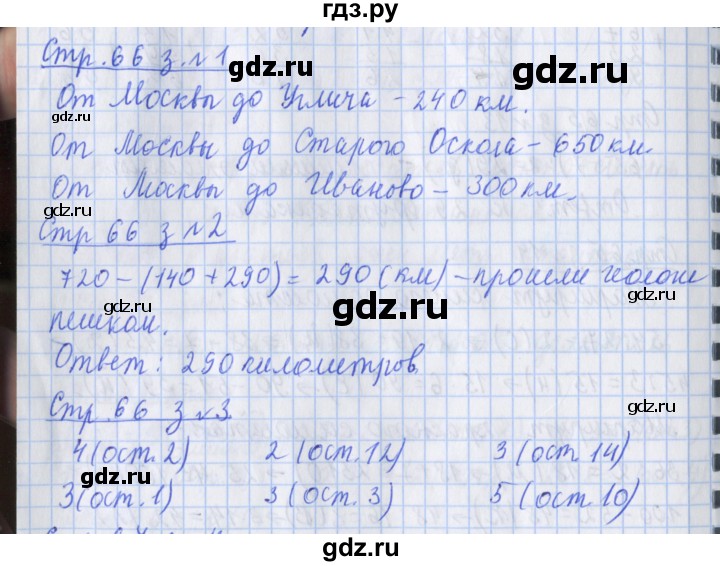 гдз.ру
Стр. 66 з. №1
От Москвы до Углича – 240 км.
От Москвы до Старого Оскола – 650 км.
От Москвы до Иваново – 300 км.
Стр 66 з №2
720 – (140 + 290) = 290 (км) – прошли
пешком.
Ответ: 290 километров
Стр. 66 з №3
4 (ост. 2) 2 (ост. 12) 3 (ост 14)
3 (ост. 1) 3 (ост. 3) 5 (ост 10)
gdz.ru
gdz.ru
gdz.ru
gdz.ru
gdz.ru
gdz.ru
gdz.ru
gdz.ru
gdz.ru
gdz.ru
gdz.ru
gdz.ru
gdz.ru
gdz.ru